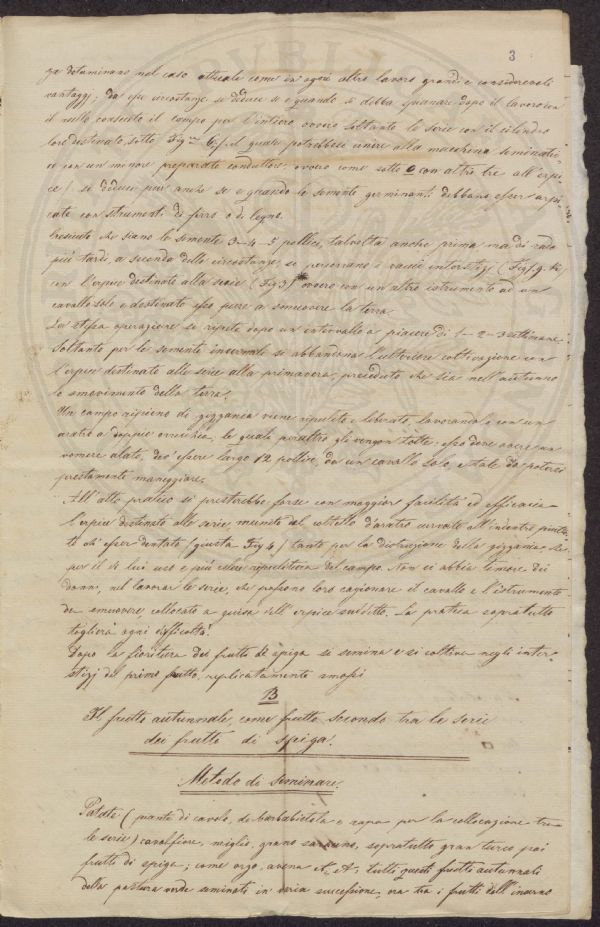 3
za determinano nel caso attuale come in ogni altro lavoro grandi e considerevoli
vantaggj; da esse circostanze si deduce se e quando si debba spianare dopo il lavoro con
il rullo consueto il campo per l'intiero ovvero soltanto le serie con il cilindro
loro destinato sotto Fig. 6, il quale potrebbesi unire alla macchina seminatri-
ce con un minore preparato conduttore, ovvero come sotto e con altro tre all'erpi-
ce) si deduce pur anche se e quando le semente germinanti debbano esser arpi-
cate con strumenti di ferro o di legno.
Cresciute che siano le semente 3-4-5 pollici, talvolta anche prima ma di rado
più tardi, a seconda delle circostanze si percorrano i vacui interstizj (Fig.
con l'erpice destinato alla serie (Fig 3) ovvero con un altro istrumento ad un
cavallo solo e destinato esso pure a smuovere la terra.
La stessa operazione si ripete dopo un intervallo a piacere di 1-2-3 settimane.
Soltanto per le semente invernali si abbandona l'ulteriore coltivazione con
l'erpice destinato alle serie alla primavera, preceduto che sia nell'autunno
lo smovimento della terra.
Un campo ripieno di zizzania viene ripulito e liberato, lavorandolo con un
aratro a doppie orecchie, le quali peraltro gli vengon tolte; esso deve avere un
vomere alato, dev'essere largo 12 pollici, da un cavallo solo, e tale da potersi
prestamente maneggiare.
All'atto pratico si presterebbe forse con maggior facilità ed efficacia
l'erpice destinato alle serie, munito del coltello d'aratro curvato all'indentro piutto-
to ch'esser dentato (giusta Fig 4) tanto per la distruzione della zizzania, che
per il di lui uso e più ripulitura del campo. Non si abbia timore dei
danni, nel lavorar le serie, che possono loro cagionare il cavallo e l'istrumento
da smuovere, collocato a guisa dell'erpice suddetto. La pratica sopratutto
toglierà ogni difficoltà.
Dopo la fioritura dei frutti di spiga si semina e si coltiva negli inter-
stizj del primo frutto, replicatamente smossi
B
Il frutto autunnale, come frutto secondo tra le serie
dei frutti di spiga.
Metodo di seminare.
Patate (piante di cavolo, di barbabietola e rapa per la collocazione tra
le serie) cavolfiore, miglio, grano saraceno, sopratutto gran turco poi
frutti di spiga; come orzo, avena tutti questi frutti autunnali
della pastura verde seminati in varia successione, ora tra i frutti dell'inverno